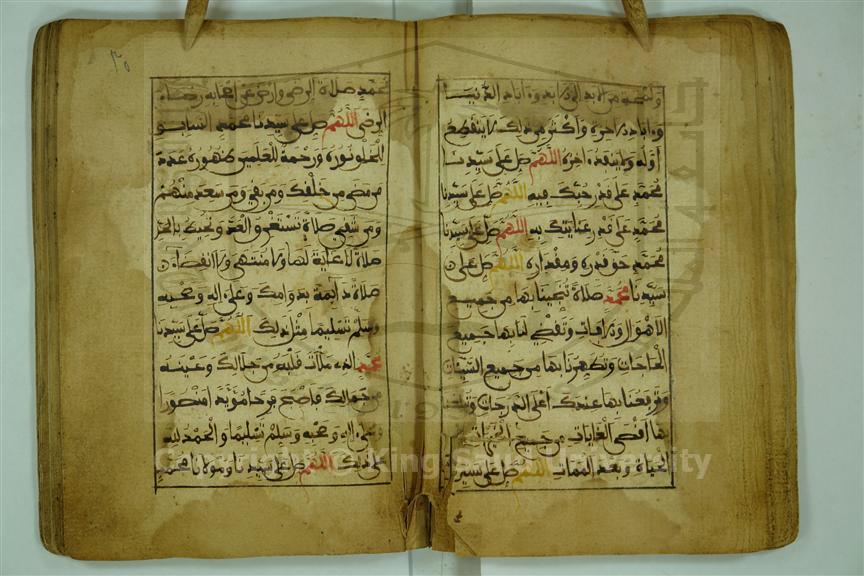 من الابد الى الابد وءاباد الدنيا
وءاباد الاخرة واكثر من ذلك لا ينقطع
اوله ولا ينفد ءاخره اللهم صل على سيدنا
محمد على قدر حبك فيه اللهم صل على سيدنا
محمد على قدر عنايتك به اللهم صل على سيدنا
محمد حق قدره ومقداره اللهم صل على
سيدنا محمد صلاة تنجينا بها من جميع
الاهوال والافات وتقضي لنا بها جميع
الحاجات وتطهرنا بها من جميع السيئات
وترفعنا بها عندك اعلى الدرجات وتبلغنا
بها اقصى الغايات من جميع الخيرات في
الحياة وبعد الممات اللهم صل على سيدنا
محمد صلاة الرضى وارض عن اصحابه رضاء
الرضى اللهم صل على سيدنا محمد السابق
للخلق نوره ورحمة للعلمين ظهوره عدد
من مضى من خلقك ومن بقي ومن سعد منهم
ومن شقي صلاة تستغرق العد وتحيط بالحد
صلاة لا غاية لها ولا منتهى ولا انقضاء
صلاة دايمة بدوامك وعلى ءاله وصحبه
وسلم تسليما مثل ذلك اللهم صل على سيدنا
محمد الذي ملات قلبه من جلالك وعينه
من جمالك فاصبح فرحا مؤيدا منصورا
وعلى ءاله وصحبه وسلم تسليما والحمد لله
على ذلك اللهم صل على سيدنا ومولانا محمد
Copyright © King Saud University